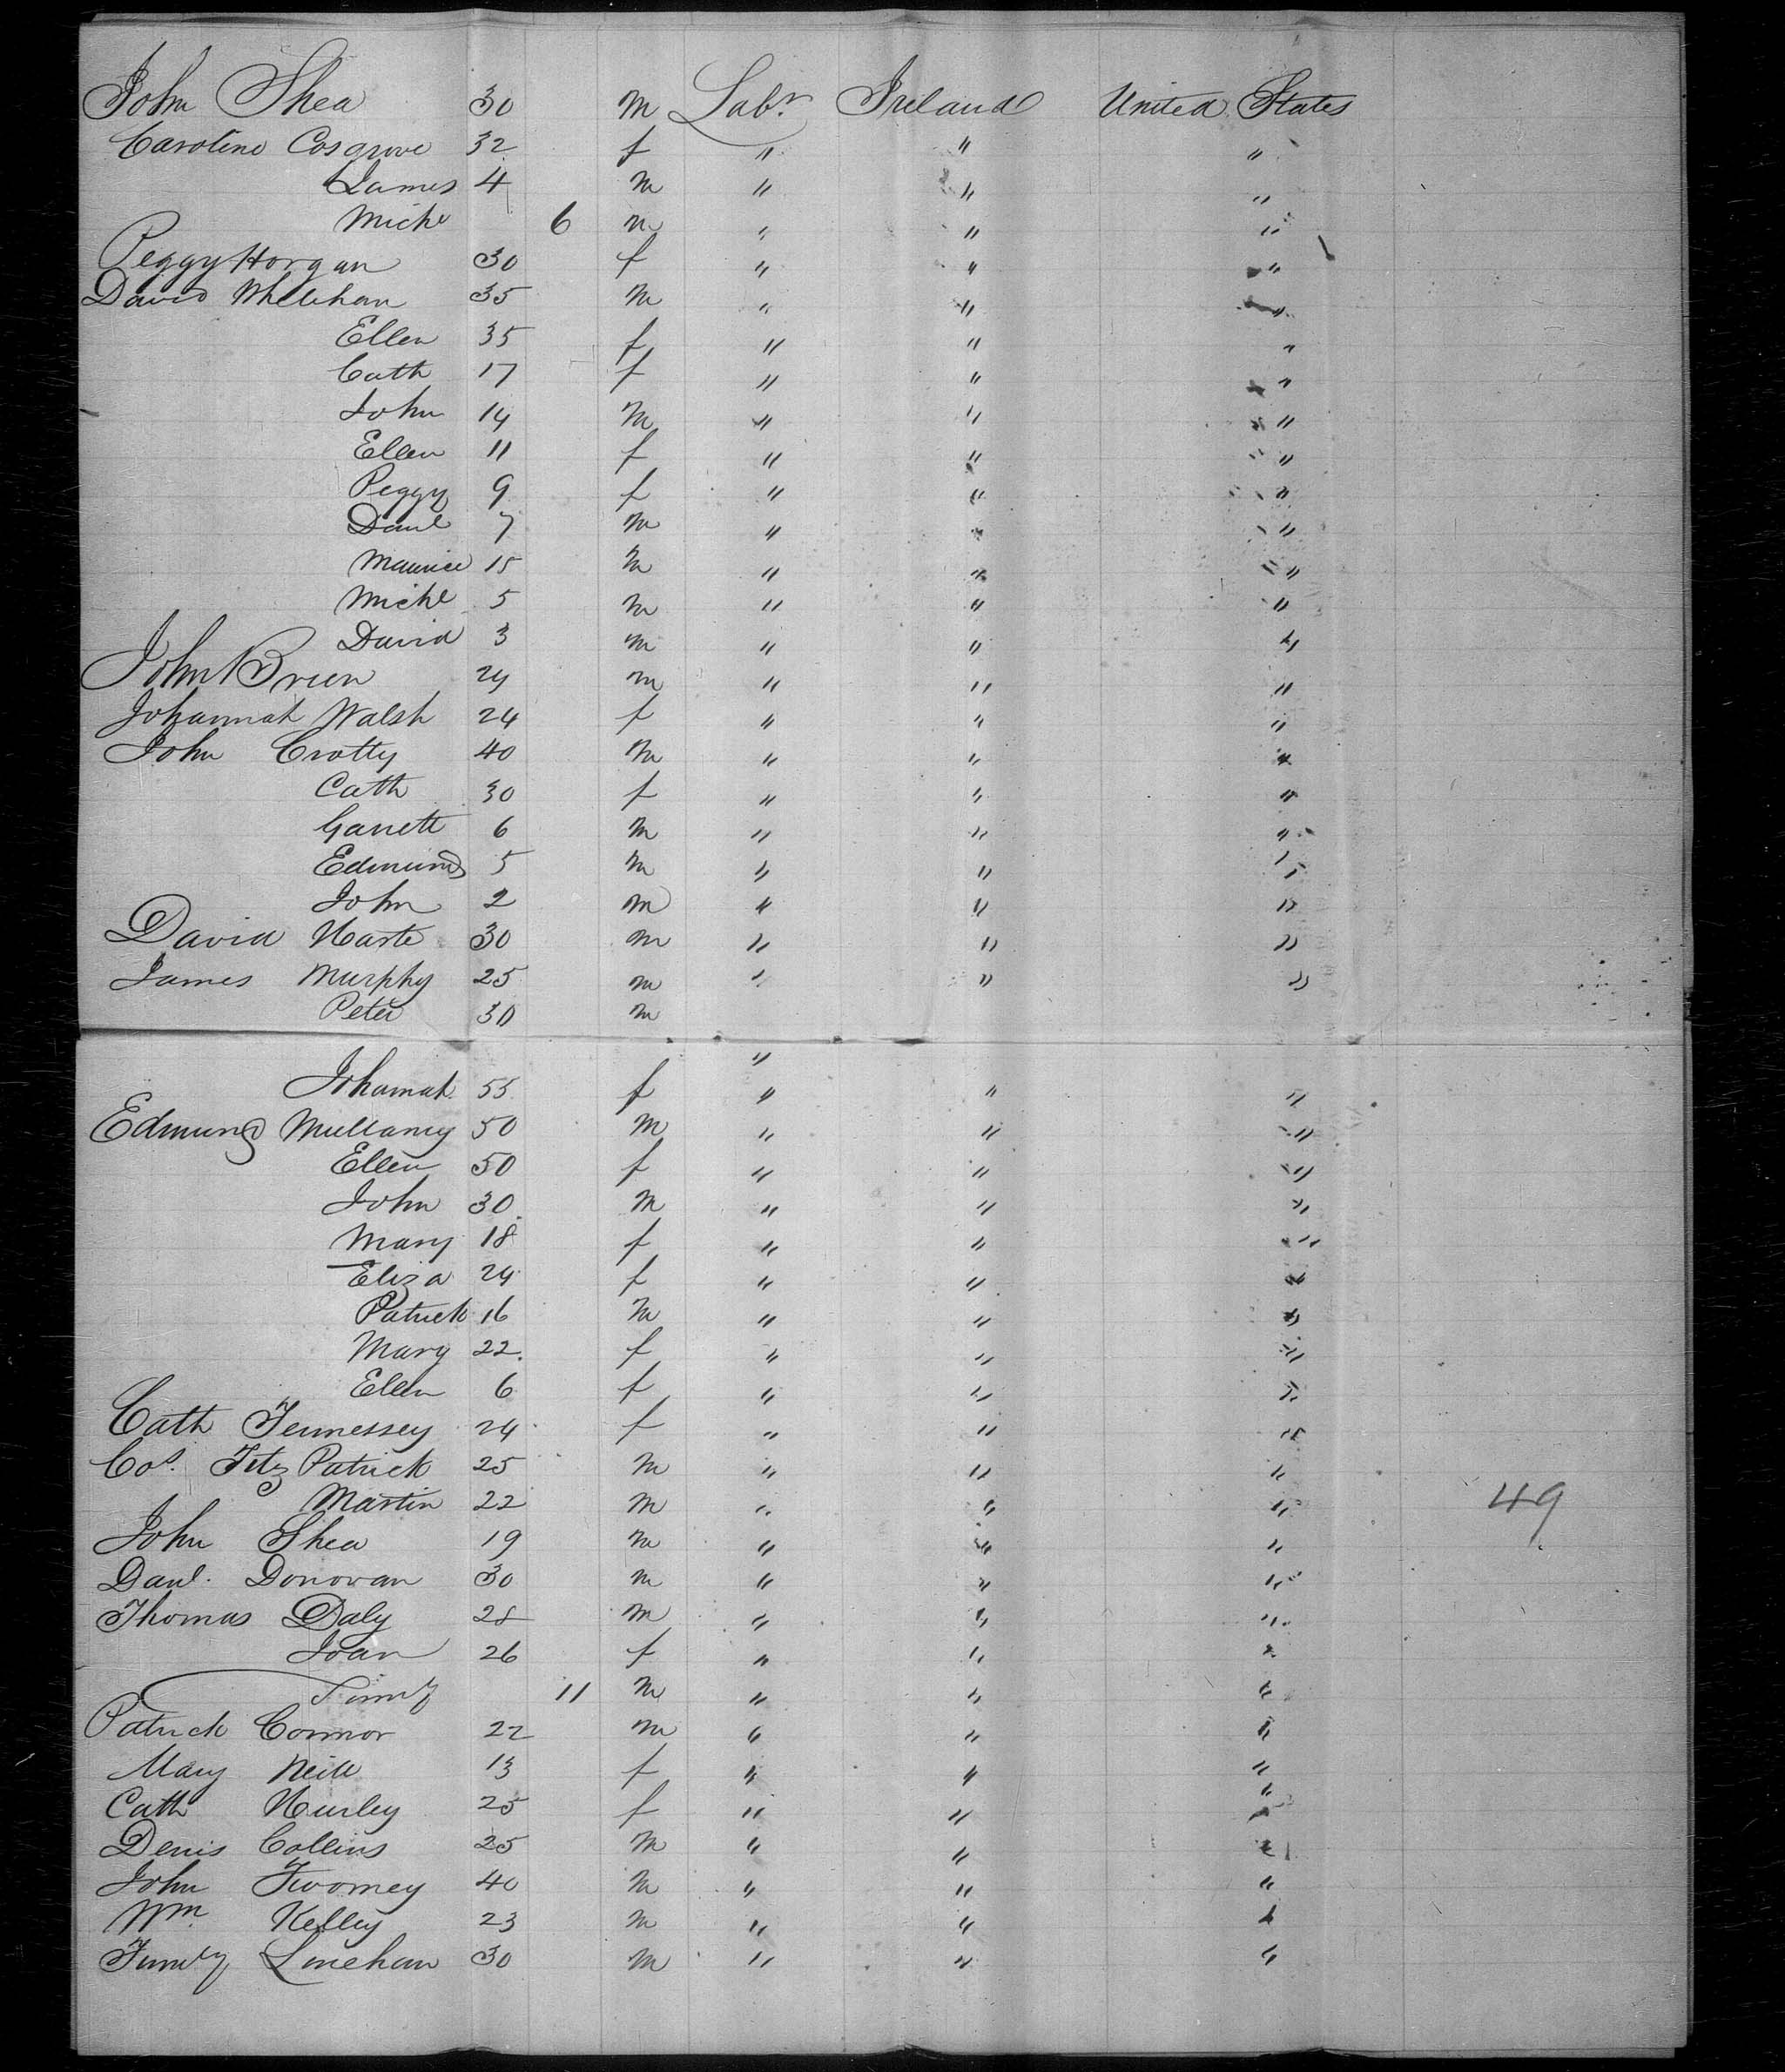 John Shea 30 m Labr Ireland United States
Caroline Cosgrove 32 f " " "
James 4 m " " "
Michl 6 m " " "
Peggy Horgan 30 f " " "
David Whelehan 35 m " " "
Ellen 35 f " " "
Cath 17 f " " "
John 14 m " " "
Ellen 11 f " " "
Peggy 9 f " " "
Danl 7 m " " "
Maurice 15 m " " "
Michl 5 m " " "
David 3 m " " "
John Brien 24 m " " "
Johannah Walsh 24 f " " "
John Crotty 40 m " " "
Cath 30 f " " "
Garrett 6 m " " "
Edmund 5 m " " "
John 2 m " " "
David Harte 30 m " " "
James Murphy 25 m " " "
Peter 30 m
"
Johannah 55 f " " "
Edmund Mullaney 50 m " " "
Ellen 50 f " " "
John 30 m " " "
Mary 18 f " " "
Eliza 24 f " " "
Patrick 16 m " " "
Mary 22 f " " "
Ellen 6 f " " "
Cath 24 f " " "
Cos. Fitz Patrick 25 m " " "
Martin 22 m " " " 49
John Shea 19 m " " "
Danl. Donovan 30 m " " "
Thomas Daly 28 m " " "
Joan 26 f " " "
Timy 11 m " " "
Patrick Connor 22 m " " "
Mary Neill 13 f " " "
Cath Hurley 25 f " " "
Denis Collins 25 m " " "
John Twomey 40 m " " "
Wm. Kelley 23 m " " "
Timy Linehan 30 m " " "